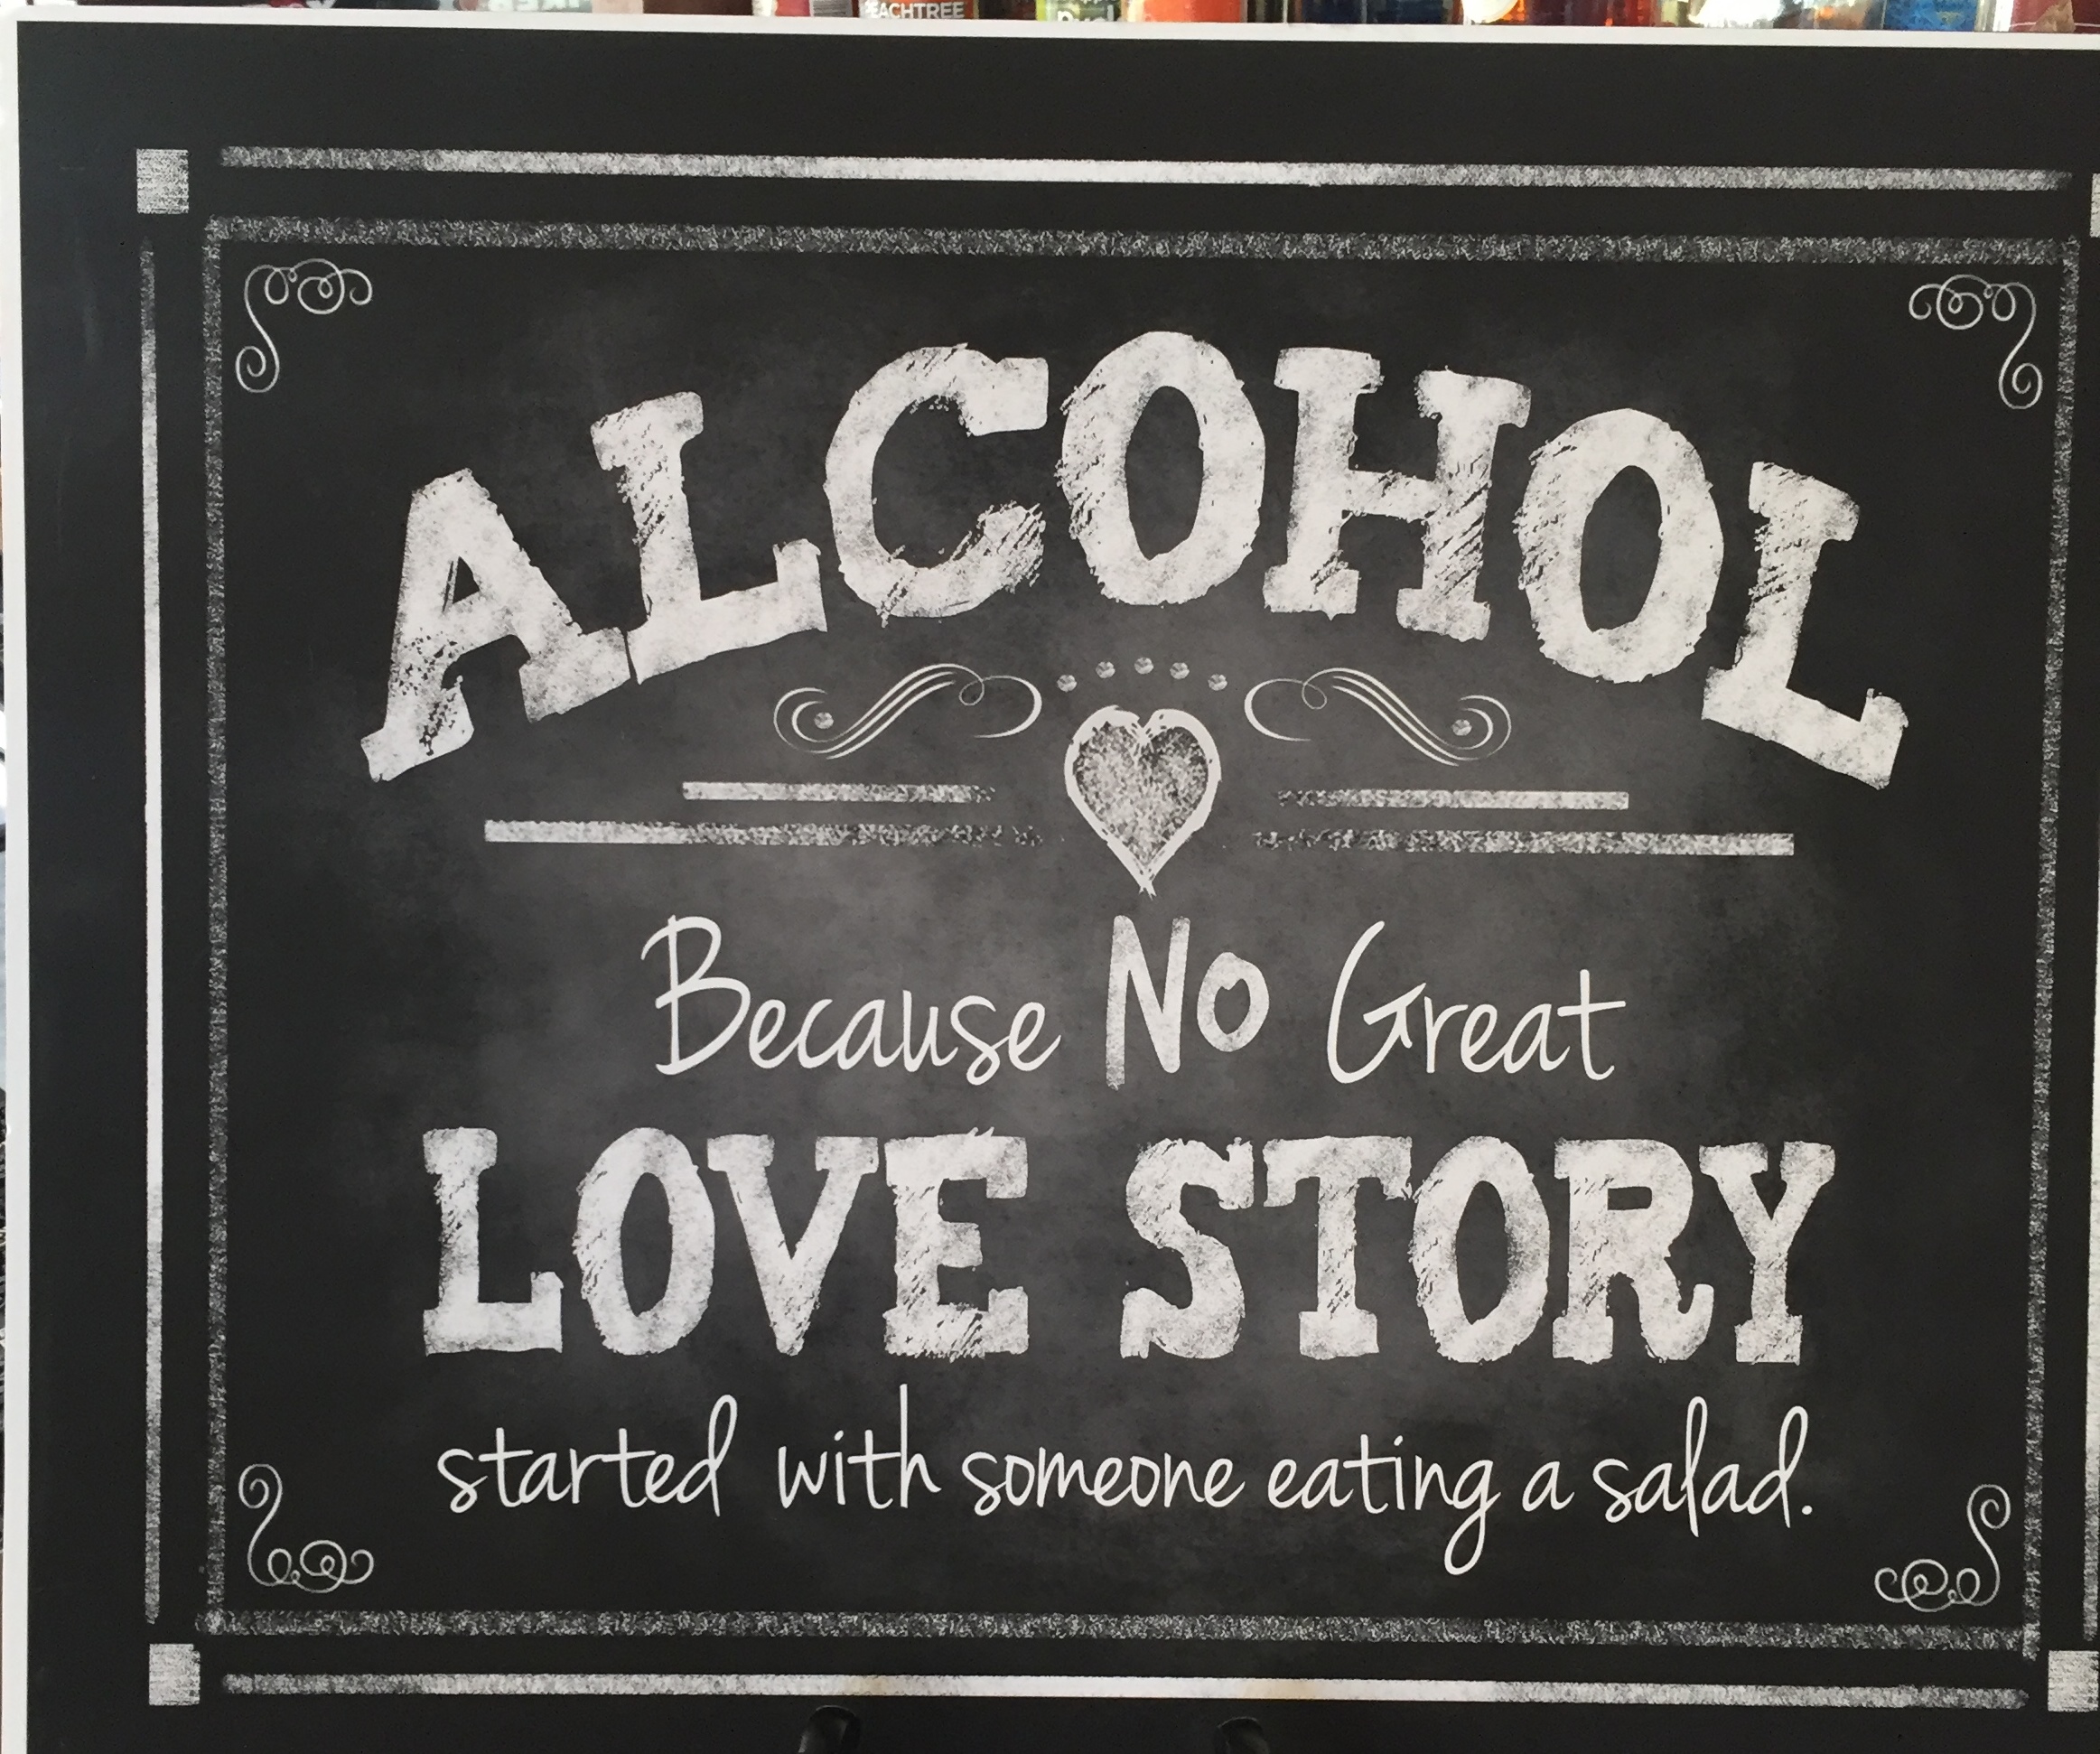 PEACHTREE
ALCOHOL
Because No Great
LOVE STORY
started with someone eating a salad.